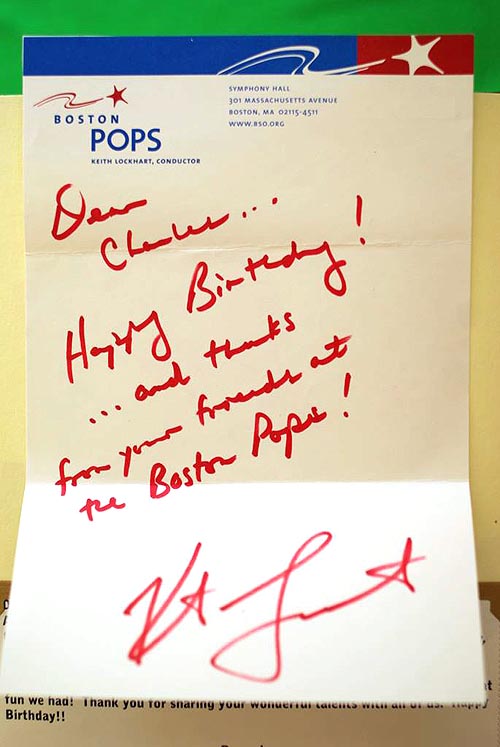 BOSTON
POPS
KEITH LOCKHART, CONDUCTOR
SYMPHONY HALL
301 MASSACHUSETTS AVENUE
BOSTON, MA 02115-4511
WWW.BSO.ORG
Dear
Charles...
Happy Birthday!
... and thanks
from your friends at
the Boston Pops!
fun we had! Thank you for sharing your wonderful talents with all of us. Happy
Birthday!!